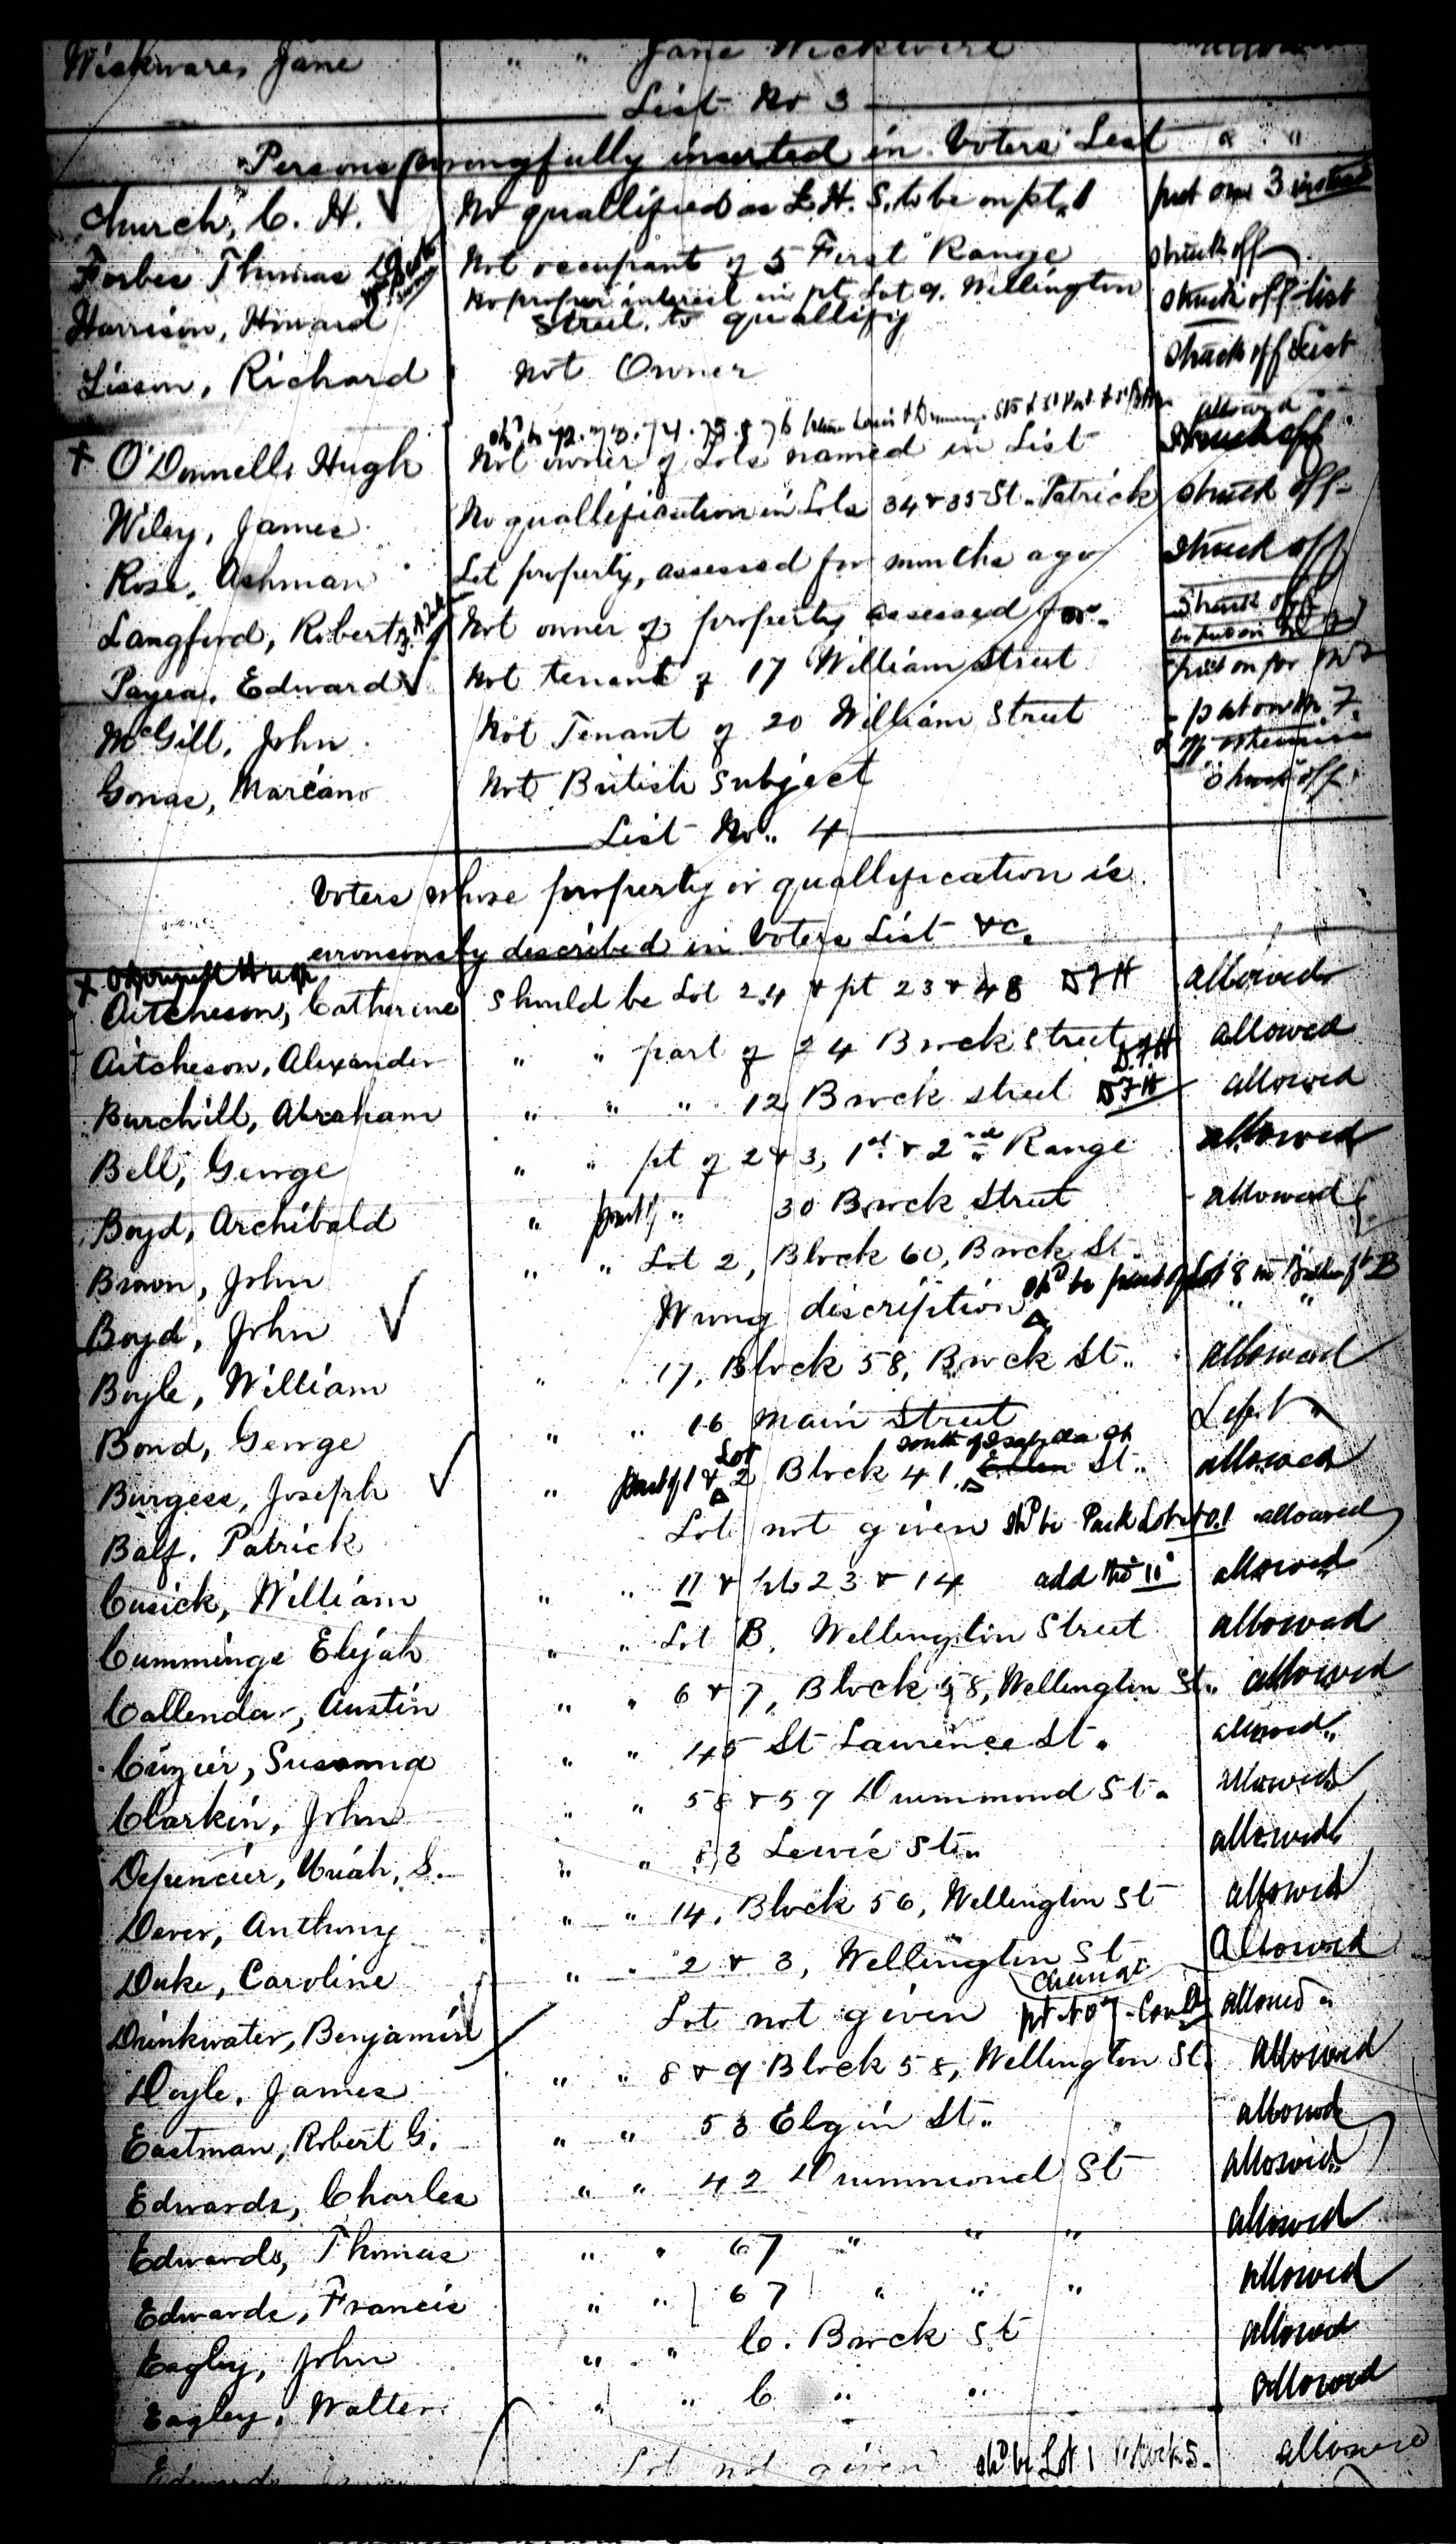 Wickware, Jane " " Jane Wickwire
List No 3
Persons wrongfully inserted in Voters' List " "
Church, C. H. ✓ No quallified as L. H. S. to be on pt. 1 put one 3 instead
Forbes Thomas Not occupant of 5 First Range struck off
Harrison, Howard No proper interest in pt Lot 9. Wellington struck off list
Street. to quallify
Lisson, Richard Not Owner struck off List
shd be 72. 73. 74. 75. & 76 allowed
+ O'Donnell, Hugh Not owner of Lots named in List struck off
Wiley, James No quallification in Lots 34 & 35 St. Patrick struck off
Rose, Ashman Let property, assessed for months ago struck off
Langford, Robert Not owner of property assessed for. struck off
Payea, Edward ✓ Not tenant of 17 William Street put on for
McGill, John Not Tenant of 20 William Street put on
Gonac, Marcano Not British Subject struck off
List No. 4
Voters whose property or quallification is
erroneously described in Voters List &c.
+
Aitcheson, Catherine Should be Lot 24 & pt 23 & 48 DFH allowed
Aitcheson, Alexander " " part of 24 Brock Street D.F.H allowed
Burchill, Abraham " " " 12 Brock street DFH allowed
Bell, George " " pt of 2 & 3, 1st & 2nd Range allowed
Boyd, Archibald " part of " 30 Brock Street allowed
Brown, John " " Lot 2, Block 60, Brock St.
Boyd, John ✓ Wrong discription shd be part of Lot 8 in " "
Boyle, William " " 17, Block 58, Brock St. allowed
Bond, George " " 16 Main Street Left
south of Isabella St
Burgess, Joseph ✓ " part of 1 & Lot 2 Block 41, St. allowed
Balf. Patrick Lot not given shd be Park Lot allowed
Cusick, William " " 11 & pts 23 & 14 add allowed
Cummings Elijah " " Lot B, Wellington Street allowed
Callendar, Austin " " 6 & 7, Block 58, Wellington St. allowed
Crozier, Susanna " " 45 St Lawrence St. allowed
Clarkin, John " " 58 & 59 Drummond St. allowed
Depencier, Uriah, S. " " 83 Lewis St. allowed
Dever, Anthony " " 14, Block 56, Wellington St allowed
Duke, Caroline " " 2 & 3, Wellington St Allowed
change
Drinkwater, Benjamin Lot not given allowed
Doyle, James " " 8 & 9 Block 58, Wellington St. allowed
Eastman, Robert G. " " 53 Elgin St. allowed
Edwards, Charles " " 42 Drummond St allowed
Edwards, Thomas " " 67 " " " allowed
Edwards, Francis " " 67 " " " allowed
Eagley, John " " C. Brock St allowed
Eagley, Walter " " C " " allowed
Edwards Lot not given shd be Lot 1 Block 5. allowed